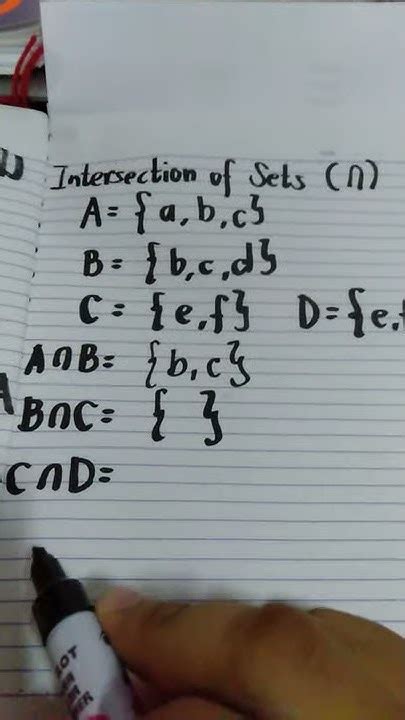 Intersection of Sets (∩)
A = {a, b, c}
B = {b, c, d}
C = {e, f} D = {e,
A∩B = {b, c}
B∩C = { }
C∩D =